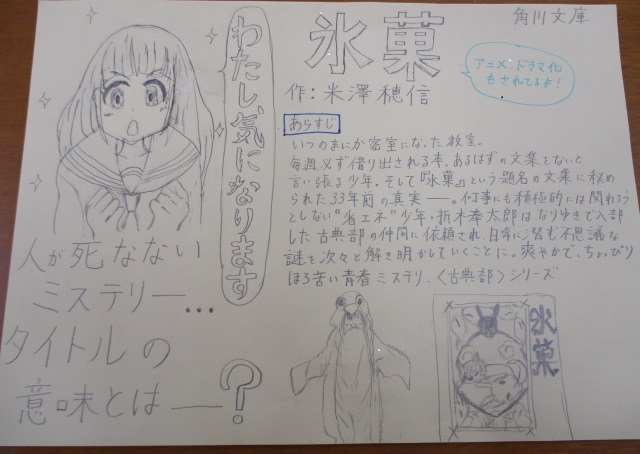 角川文庫
氷菓
作：米澤穂信
アニメ・ドラマ化
もされてるよ！
わたし、気になります
あらすじ
いつのまにか密室になった教室。
毎週必ず借り出される本、あるはずの文集をないと
言い張る少年。そして『氷菓』という題名の文集に秘め
られた33年前の真実――。何事にも積極的には関わろう
としない"省エネ"少年・折木奉太郎はなりゆきで入部
した古典部の仲間に依頼され、日常に潜む不思議な
謎を次々と解き明かしていくことに。爽やかで、ちょっぴり
ほろ苦い青春ミステリ、〈古典部〉シリーズ
人が死なない
ミステリー...
タイトルの
意味とは――？
氷菓